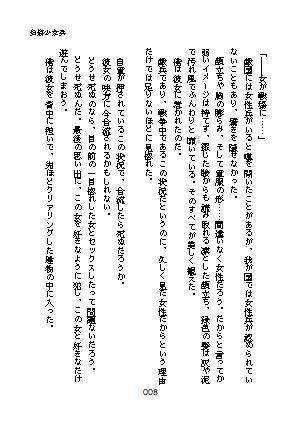 負傷少女兵
「――女が戦場に……」
敵国には女性兵がいると噂を聞いたことがあるが、我が国では女性兵が認められてい
ないこともあり、驚きを隠せなかった。
顔立ちや胸の膨らみ、そして軍服の形……間違いなく女性だろう。だからと言ってか
弱いイメージは持てず、閉じた瞼からも読み取れる凛とした顔立ち、緑色の髪は灰や泥
で汚れ風でふんわりと靡いている。そのすべてが美しく観えた。
俺は彼女に惹かれたのだ。
敵兵であり、戦争中であるこの状況だというのに、久しく見た女性だからという理由
だけでは足りないほどに見惚れた。
自軍が押されているこの状況で、合流したら死ぬだろうか。
彼女の味方に今合流されるかもしれない。
どうせ死ぬのなら、目の前の一目惚れした女とセックスしたって問題ないだろう。
どうせ死ぬんだ。最後の思い出に、この女を好きなように犯し、この女と好きなだけ
遊んでしまおう。
俺は彼女を背中に担いで、先ほどクリアリングした建物の中に入った。
008